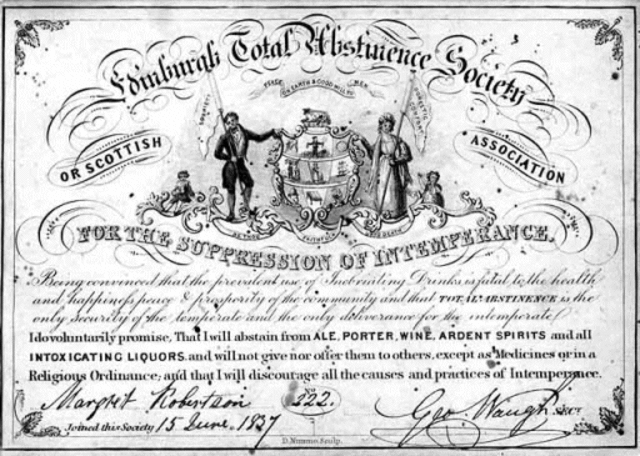 Edinburgh Total Abstinence Society
PEACE ON EARTH & GOOD WILL TO MEN
SOBRIETY
DOMESTIC COMFORT
OR SCOTTISH
ASSOCIATION
BE THOU FAITHFUL UNTO DEATH
FOR THE SUPPRESSION OF INTEMPERANCE,
Being convinced that the prevalent use of Inebriating Drinks is fatal to the health
and happiness peace & prosperity of the community and that TOTAL ABSTINENCE is the
only security of the temperate and the only deliverance for the intemperate
I do voluntarily promise, That I will abstain from ALE, PORTER, WINE, ARDENT SPIRITS and all
INTOXICATING LIQUORS, and will not give nor offer them to others, except as Medicines or in a
Religious Ordinance; and that I will discourage all the causes and practices of Intemperance.
Margret Robertson No 222. Geo. Waugh SECY.
Joined this Society 15 June. 1837
D. Nimmo Sculp.